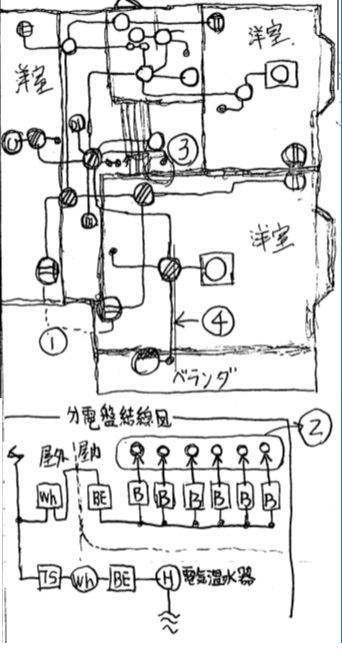 洋室
洋室
③
洋室
④
①
ベランダ
分電盤結線図
②
屋外
屋内
Wh
BE
B
B
B
B
B
B
TS
Wh
BE
H
電気温水器